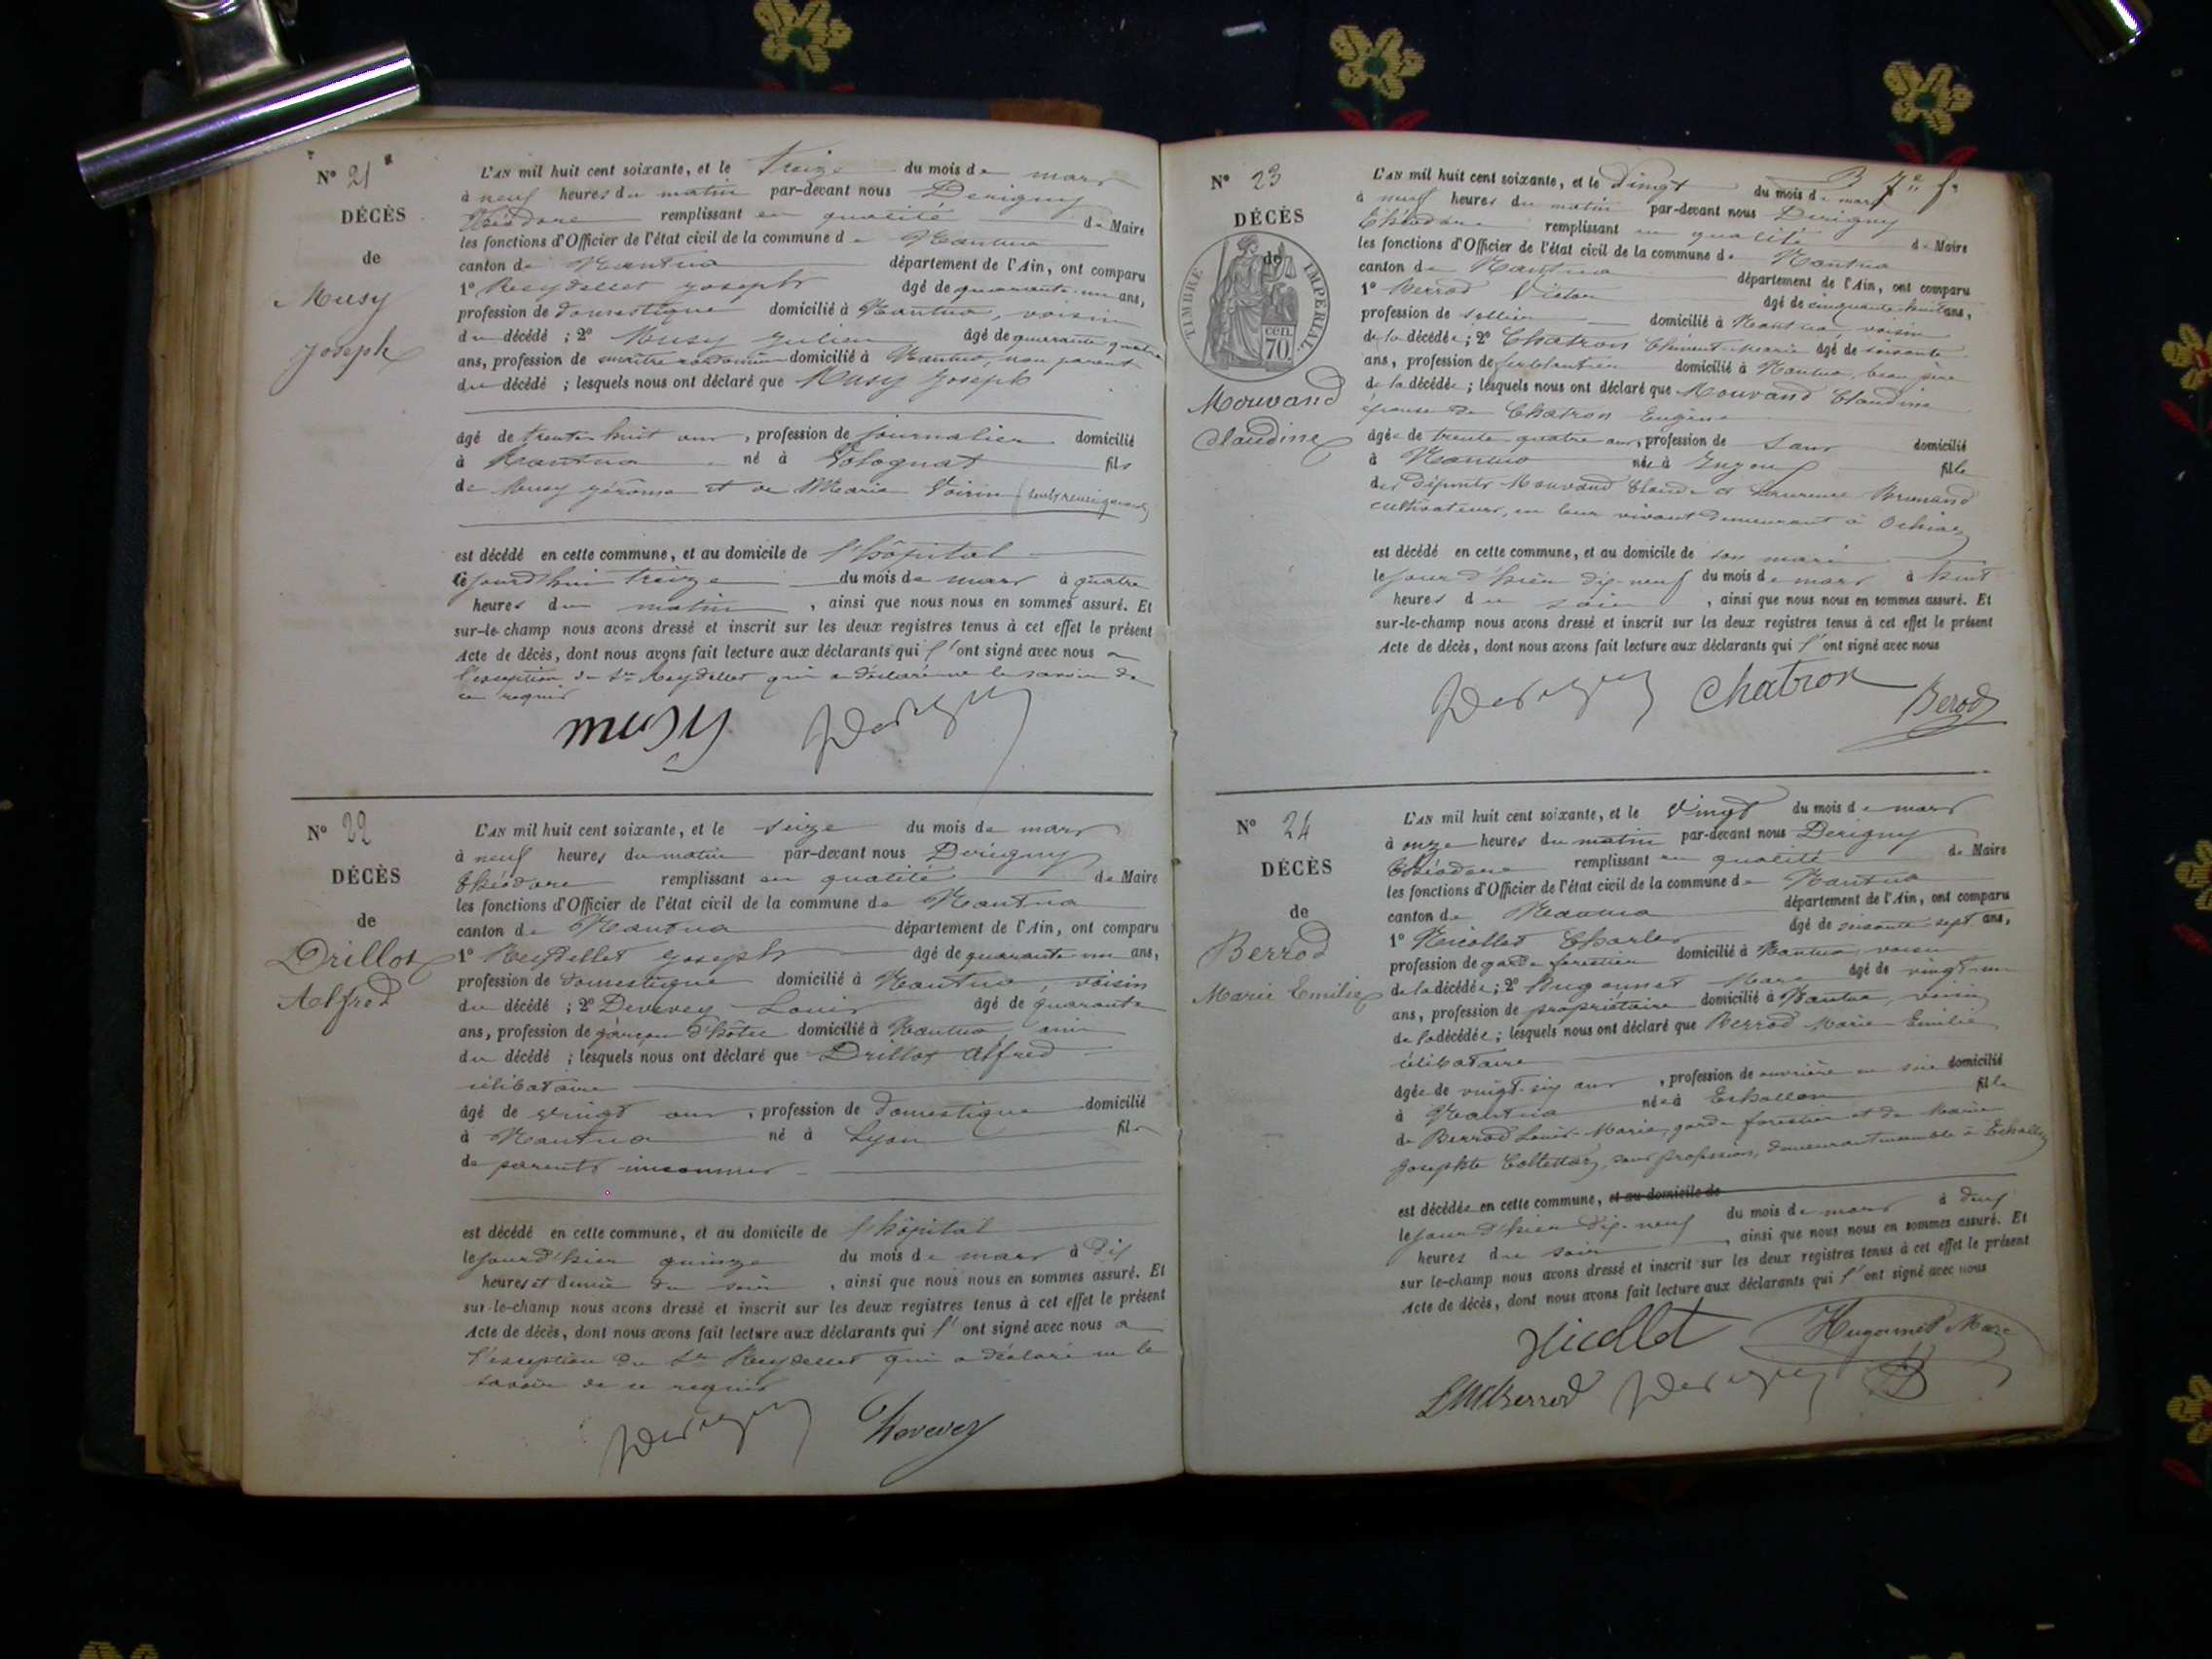 N° 21
DÉCÈS
de
Musy
Joseph
L'AN mil huit cent soixante, et le treize du mois de mars
à neuf heures du matin par-devant nous Derigny
Théodore remplissant en qualité de Maire
les fonctions d'Officier de l'état civil de la commune de Nantua
canton de Nantua département de l'Ain, ont comparu
1° Reydellet Joseph âgé de quarante un ans,
profession de domestique domicilié à Nantua, voisin
du décédé ; 2° Musy Julien âgé de quarante quatre
ans, profession de domicilié à Nantua, non parent
du décédé ; lesquels nous ont déclaré que Musy Joseph
âgé de trente huit ans, profession de journalier domicilié
à Nantua né à Volognat fils
de Musy Jérôme et de Marie Voirin
est décédé en cette commune, et au domicile de l'hôpital
cejourd'hui treize du mois de mars à quatre
heures du matin, ainsi que nous nous en sommes assuré. Et
sur-le-champ nous avons dressé et inscrit sur les deux registres tenus à cet effet le présent
Acte de décès, dont nous avons fait lecture aux déclarants qui l'ont signé avec nous a
l'exception du Sr Reydellet qui a déclaré ne le savoir de
ce requis
musy Derigny
N° 22
DÉCÈS
de
Drillot
Alfred
L'AN mil huit cent soixante, et le seize du mois de mars
à neuf heures du matin par-devant nous Derigny
Théodore remplissant en qualité de Maire
les fonctions d'Officier de l'état civil de la commune de Nantua
canton de Nantua département de l'Ain, ont comparu
1° Reydellet Joseph âgé de quarante un ans,
profession de domestique domicilié à Nantua, voisin
du décédé ; 2° Devevey Louis âgé de quarante
ans, profession de garçon d'hôtel domicilié à Nantua, ami
du décédé ; lesquels nous ont déclaré que Drillot Alfred
célibataire
âgé de vingt ans, profession de domestique domicilié
à Nantua né à Lyon fils
de parents inconnus
est décédé en cette commune, et au domicile de l'hôpital
le jour d'hier quinze du mois de mars à dix
heures et demie du soir, ainsi que nous nous en sommes assuré. Et
sur-le-champ nous avons dressé et inscrit sur les deux registres tenus à cet effet le présent
Acte de décès, dont nous avons fait lecture aux déclarants qui l'ont signé avec nous a
l'exception du Sr Reydellet qui a déclaré ne le
savoir de ce requis
Derigny Devevey
N° 23
DÉCÈS
de
TIMBRE IMPÉRIAL
70 cen.
Mouvand
Claudine
L'AN mil huit cent soixante, et le vingt du mois de mars
à neuf heures du matin par-devant nous Derigny
Théodore remplissant en qualité de Maire
les fonctions d'Officier de l'état civil de la commune de Nantua
canton de Nantua département de l'Ain, ont comparu
1° Berrod Victor âgé de cinquante huit ans,
profession de sellier domicilié à Nantua, voisin
de la décédée ; 2° Chatron Clément Marie âgé de soixante
ans, profession de ferblantier domicilié à Nantua, beau père
de la décédée ; lesquels nous ont déclaré que Mouvand Claudine
épouse de Chatron Eugène
âgée de trente quatre ans, profession de sans domicilié
à Nantua née à fille
des défunts Mouvand Claude et
cultivateurs, en leur vivant demeurant à Ochiaz
est décédé en cette commune, et au domicile de son mari
le jour d'hier dix-neuf du mois de mars à huit
heures du soir, ainsi que nous nous en sommes assuré. Et
sur-le-champ nous avons dressé et inscrit sur les deux registres tenus à cet effet le présent
Acte de décès, dont nous avons fait lecture aux déclarants qui l'ont signé avec nous
Derigny Chatron Berod
N° 24
DÉCÈS
de
Berrod
Marie Emilie
L'AN mil huit cent soixante, et le vingt du mois de mars
à onze heures du matin par-devant nous Derigny
Théodore remplissant en qualité de Maire
les fonctions d'Officier de l'état civil de la commune de Nantua
canton de Nantua département de l'Ain, ont comparu
1° Nicollet Charles âgé de soixante sept ans,
profession de garde forestier domicilié à Nantua, voisin
de la décédée ; 2° Hugonnet Marc âgé de vingt-un
ans, profession de propriétaire domicilié à Nantua, voisin
de la décédée ; lesquels nous ont déclaré que Berrod Marie Emilie
célibataire
âgée de vingt-six ans, profession de ouvrière en soie domicilié
à Nantua née à Echallon fille
de Berrod Louis-Marie, garde forestier et de Marie
Josephte, sans profession, demeurant ensemble à Echallon
est décédée en cette commune, et au domicile de
le jour d'hier dix-neuf du mois de mars à deux
heures du soir, ainsi que nous nous en sommes assuré. Et
sur le-champ nous avons dressé et inscrit sur les deux registres tenus à cet effet le présent
Acte de décès, dont nous avons fait lecture aux déclarants qui l'ont signé avec nous
Nicollet Hugonnet Marc
LM Berrod Derigny